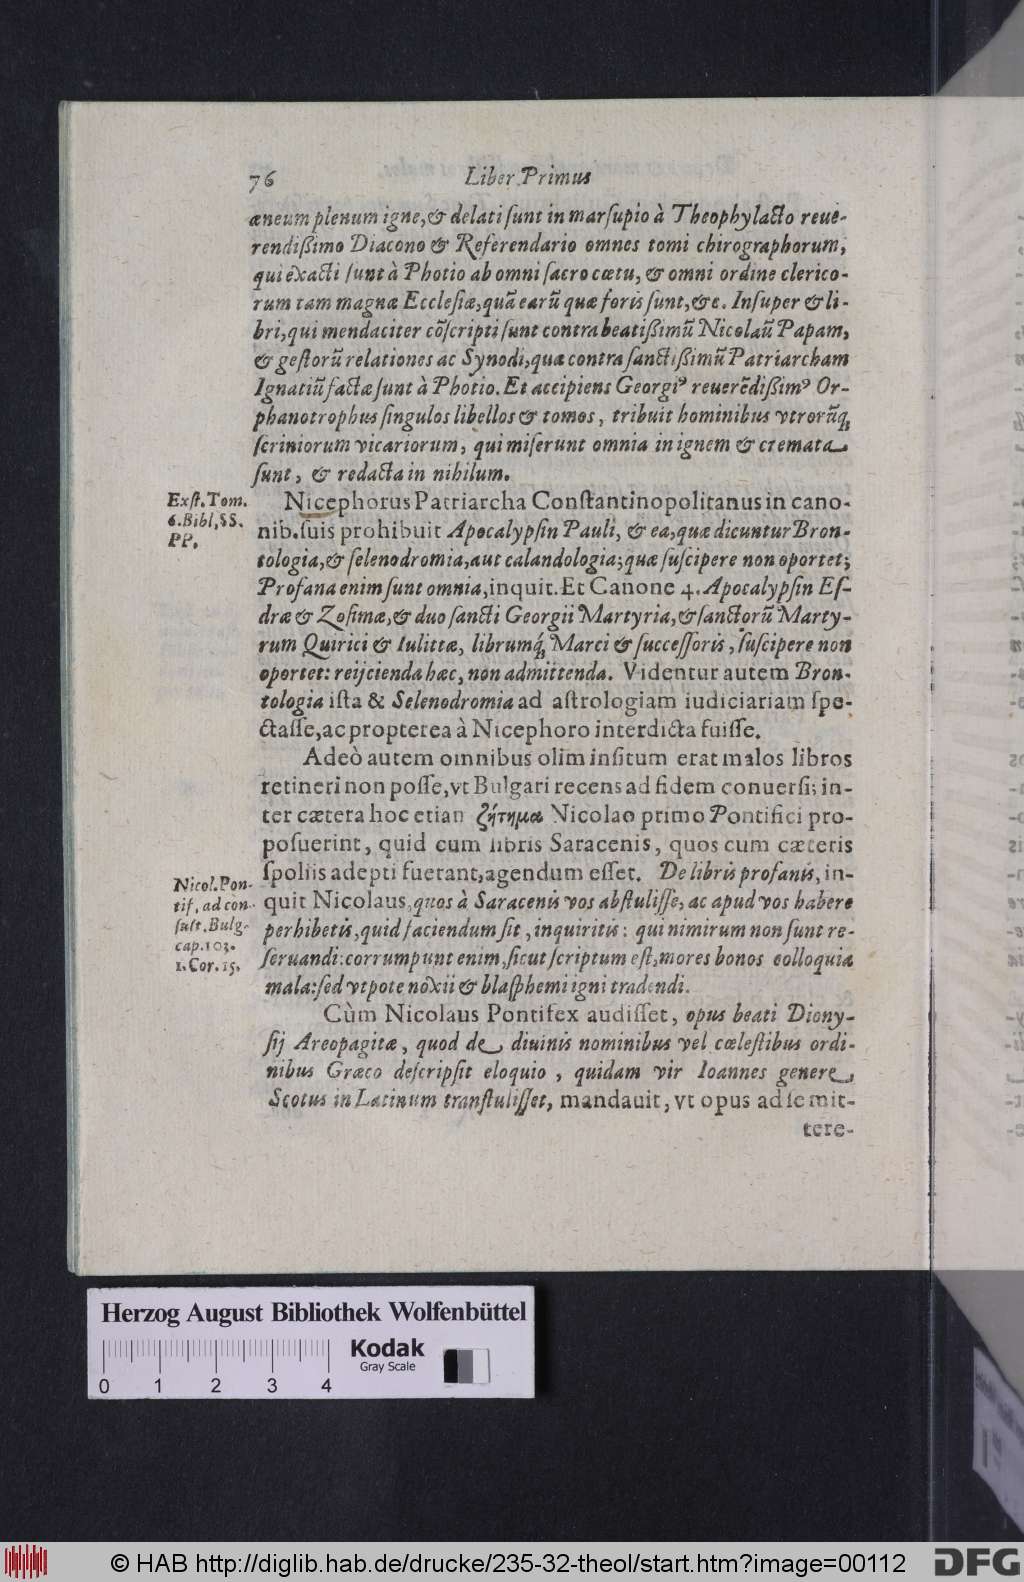 76 Liber Primus
æneum plenum igne, & delati ſunt in marſupio à Theophylacto reue-
rendißimo Diacono & Referendario omnes tomi chirographorum,
qui exacti ſunt à Photio ab omni ſacro cœtu, & omni ordine clerico-
rum tam magnæ Eccleſiæ, quā earū quæ foris ſunt, &c. Inſuper & li-
bri, qui mendaciter cōſcripti ſunt contra beatißimū Nicolaū Papam,
& geſtorū relationes ac Synodi, quæ contra ſanctißimū Patriarcham
Ignatiū factæ ſunt à Photio. Et accipiens Georgiꝰ reuerēdißimꝰ Or-
phanotrophus ſingulos libellos & tomos, tribuit hominibus vtrorūq́;
ſcriniorum vicariorum, qui miſerunt omnia in ignem & cremata
ſunt, & redacta in nihilum.
Exſt. Tom.
6. Bibl. SS.
PP.
Nicephorus Patriarcha Conſtantinopolitanus in cano-
nib. ſuis prohibuit Apocalypſin Pauli, & ea, quæ dicuntur Bron-
tologia, & ſelenodromia, aut calandologia; quæ ſuſcipere non oportet;
Profana enim ſunt omnia, inquit. Et Canone 4. Apocalypſin Eſ-
dræ & Zoſimæ, & duo ſancti Georgii Martyria, & ſanctorū Marty-
rum Quirici & Iulittæ, librumq́; Marci & ſucceſſoris, ſuſcipere non
oportet: reijcienda hæc, non admittenda. Videntur autem Bron-
tologia iſta & Selenodromia ad aſtrologiam iudiciariam ſpe-
ctaſſe, ac propterea à Nicephoro interdicta fuiſſe.
Adeò autem omnibus olim inſitum erat malos libros
retineri non poſſe, vt Bulgari recens ad fidem conuerſi, in-
ter cætera hoc etian ζήτημα Nicolao primo Pontifici pro-
poſuerint, quid cum libris Saracenis, quos cum cæteris
ſpoliis adepti fuerant, agendum eſſet. De libris profanis, in-
Nicol. Pon-
tif. ad con-
ſult. Bulg.
cap. 103.
1. Cor. 15.
quit Nicolaus, quos à Saracenis vos abſtuliſſe, ac apud vos habere
perhibetis, quid faciendum ſit, inquiritis: qui nimirum non ſunt re-
ſeruandi: corrumpunt enim, ſicut ſcriptum eſt, mores bonos colloquia
mala: ſed vtpote noxii & blaſphemi igni tradendi.
Cùm Nicolaus Pontifex audiſſet, opus beati Diony-
ſij Areopagitæ, quod de diuinis nominibus vel cœleſtibus ordi-
nibus Græco deſcripſit eloquio, quidam vir Ioannes genere
Scotus in Latinum tranſtuliſſet, mandauit, vt opus ad ſe mit-
tere-
Herzog August Bibliothek Wolfenbüttel
Kodak
Gray Scale
0 1 2 3 4
© HAB http://diglib.hab.de/drucke/235-32-theol/start.htm?image=00112
DFG